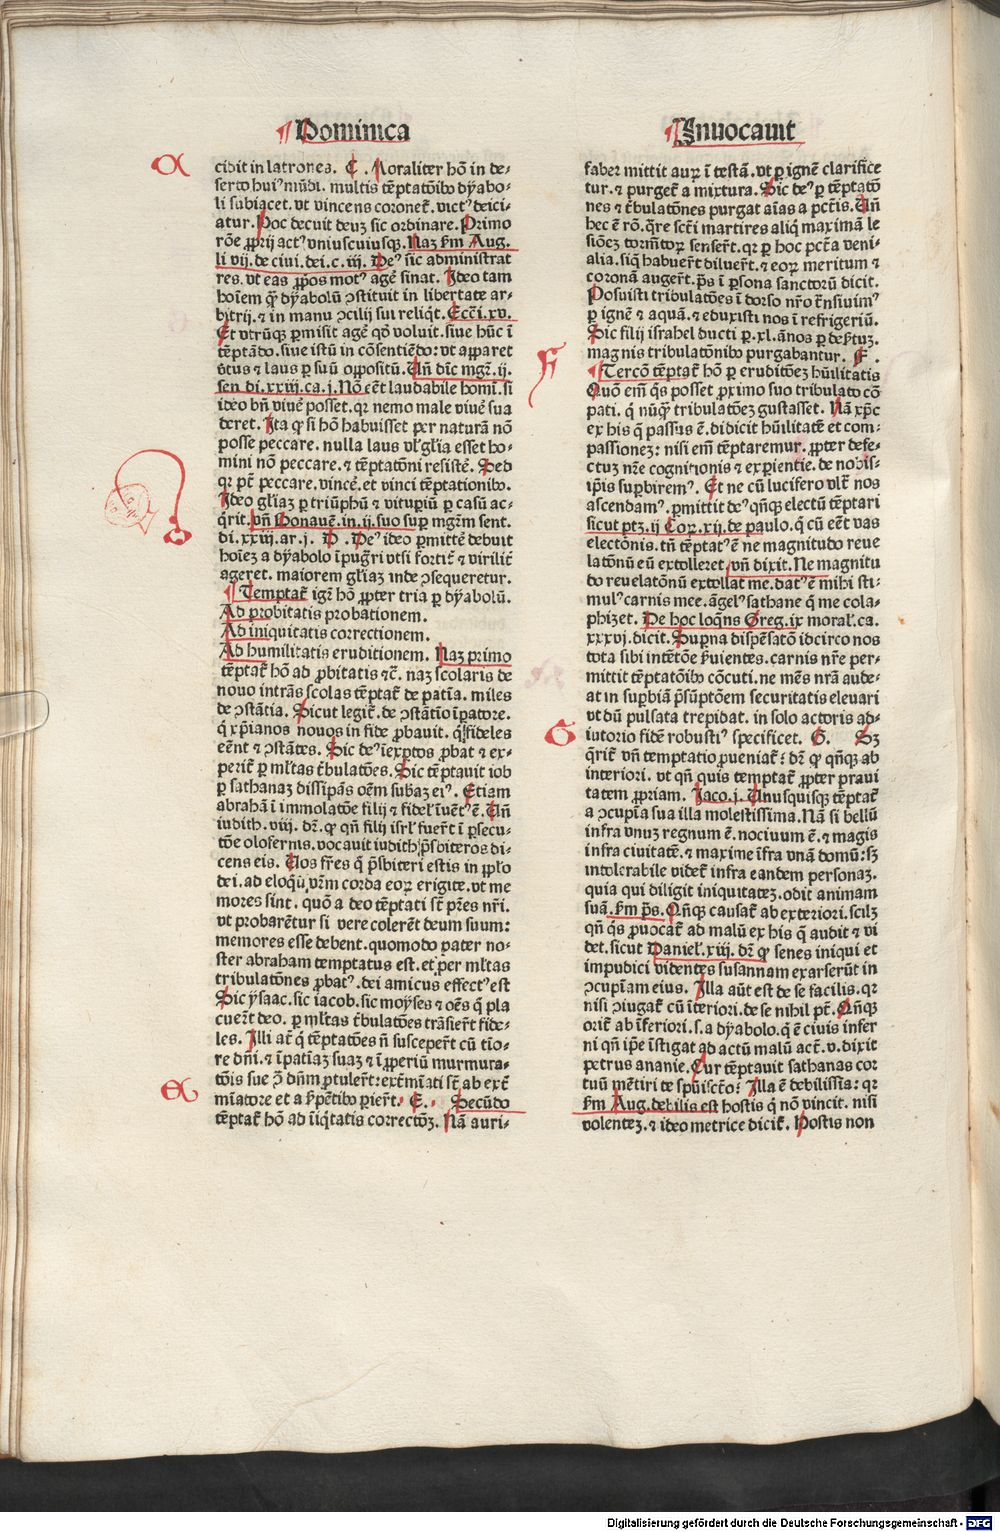 Dominica
cidit in latrones. C. Moraliter hō in de-
serto hui⁹ mūdi. multis tēptatōib⁹ dyabo-
li subiacet. vt vincens coronet̄. vict⁹ deici-
atur. Hoc decuit deuȝ sic ordinare. Primo
rōe ꝓprij act⁹ vniuscuiusqȝ. Naȝ ẜm Aug.
li vij. de ciui. dei. c. iij. De⁹ sic administrat
res. vt eas ꝓprios mot⁹ agē sinat. Ideo tam
hoīem qȝ dyabolū ꝯstituit in libertate ar-
bitrij. ⁊ in manu ꝯcilij sui reliqt. Ecci. xv.
Et vtrūqȝ ꝑmisit agē qd voluit. siue hūc ī
tēptādo. siue istū in cōsentiēdo: vt apparet
v̄tus ⁊ laus ꝑ suū oppositū. Uñ dic̄ mgr̄. ij.
sen di. xxiij. ca. j. Nō eēt laudabile homī. si
ideo bñ viuē posset. qr nemo male viuē sua
deret. Ita ꝙ si hō habuisset per naturā nō
posse peccare. nulla laus vl̓ gl̓ia esset ho-
mini nō peccare. ⁊ tēptatōni resistē. Sed
qr pt̄ peccare. vincē. et vinci tēptationibꝰ.
Ideo gl̓iaȝ ꝑ triūphū ⁊ vitupiū ꝑ casū ac-
qrit. vñ Bonauē. in. ij. suo sup̄ mgr̄m sent.
di. xxiij. ar. j. D. De⁹ ideo ꝑmittē debuit
hoīeȝ a dyabolo īpugri vtsi fortit̄ ⁊ virilit̄
ageret. maiorem gl̓iaȝ inde ꝯsequeretur.
¶ Temptat̄ igr̄ hō ꝓpter tria ꝑ dyabolū.
Ad probitatis probationem.
Ad iniquitatis correctionem.
Ad humilitatis eruditionem. Naȝ primo
tēptat̄ hō ad ꝓbitatis ⁊c̄. naȝ scolaris de
nouo intrās scolas tēptat̄ de patīa. miles
de ꝯstātia. Sicut legit̄. de ꝯstātīo īpatore.
q xp̄ianos nouos in fide ꝓbauit. q fideles
eēnt ⁊ ꝯstātes. Sic de⁹ īexptos ꝓbat ⁊ ex-
perit̄ ꝑ ml̓tas t̄bulatōes. Sic tēptauit iob
ꝑ sathanaȝ dissipās oēm subāȝ ei⁹. Etiam
abrahā ī immolatōe filij ⁊ fidel̓ īuēt⁹ ē. Uñ
iudith. viij. dr̄. ꝙ qñ filij isrl̓ fuer̄t ī ꝑsecu-
tōe olofernis. vocauit iudith p̄sbiteros di-
cens eis. Uos fr̄es q p̄sbiteri estis in ppl̓o
dei. ad eloqū vr̄m corda eoꝝ erigite. vt me
mores sint. quō a deo tēptati st̄ pr̄es nr̄i.
vt probarētur si vere colerēt deum suum:
memores esse debent. quomodo pater no-
ster abraham temptatus est. et per ml̓tas
tribulatōnes ꝓbat⁹. dei amicus effect⁹ est
Sic ysaac. sic iacob. sic moyses ⁊ oēs q pla
cuer̄t deo. ꝑ ml̓tas t̄bulatōes trāsier̄t fide-
les. Illi at̄ q tēptatōes ñ susceper̄t cū tio-
re dñi. ⁊ īpatīaȝ suaȝ ⁊ īꝓperiū murmura-
tōis sue ꝯ dñm ꝓtuler̄t: ext̄mīati st̄ ab ext̄
mīatore et a ẜpētibꝰ ꝑier̄t. E. Secūdo
tēptat̄ hō ad īiqtatis correctōȝ. Nā auri-
Inuocauit
faber mittit auꝝ ī testā. vt ꝑ ignē clarifice
tur. ⁊ purget̄ a mixtura. Sic de⁹ ꝑ tēptatō
nes ⁊ t̄bulatōnes purgat aīas a pct̄is. Uñ
hec ē rō. qre sct̄i martires aliq maximā le
siōeȝ tormētoꝝ senser̄t. qr ꝑ hoc pct̄a veni-
alia. siq habuer̄t diluer̄t. ⁊ eoꝝ meritum ⁊
coronā auger̄t. p̄s ī ꝑsona sanctorū dicit.
Posuisti tribulatōes ī dorso nr̄o t̄nsiuim⁹
ꝑ ignē ⁊ aquā. ⁊ eduxisti nos ī refrigeriū.
Sic filij israhel ducti ꝑ. xl. ānos ꝑ deẜtuȝ.
magnis tribulatōnibꝰ purgabantur. F.
¶ Tercō tēptat̄ hō ꝑ eruditōeȝ hūilitatis
Quō em̄ qs posset ꝓximo suo tribulato cō
pati. q nūqȝ tribulatōeȝ gustasset. Nā xp̄c
ex his q passus ē. didicit hūilitatē et com-
passioneȝ: nisi em̄ tēptaremur. ꝓpter defe-
ctuȝ nr̄e cognitionis ⁊ experientie. de nobis-
ip̄is suꝑbirem⁹. Et ne cū lucifero vlt̄ nos
ascendam⁹. ꝑmittit de⁹ qñqȝ electū tēptari
sicut ptȝ. ij Coꝝ. xij. de paulo. q cū eēt vas
electōnis. tñ tēptat⁹ ē ne magnitudo reue
latōnū eū extolleret. vñ dixit. Ne magnitu
do reuelatōnū extollat me. dat⁹ ē mihi sti-
mul⁹ carnis mee. āgel⁹ sathane q me cola-
phizet. De hoc loqns Greg. ix moral̓. ca.
xxxvj. dicit. Supna dispēsatō idcirco nos
tota sibi intētōe ẜuientes. carnis nr̄e per-
mittit tēptatōibꝰ cōcuti. ne mēs nr̄a aude-
at in suꝑbiā p̄sūptōem securitatis eleuari
vt dū pulsata trepidat. in solo actoris ad-
iutorio fidē robusti⁹ specificet. G. Sȝ
qrit̄ vñ temptatio ꝓueniat: dr̄ ꝙ qñqȝ ab
interiori. vt qñ quis temptat̄ ꝓpter praui
tatem ꝓpriam. Jaco. j. Unusquisqȝ tēptat̄
a ꝯcupīa sua illa molestissima. Nā si bellū
infra vnuȝ regnum ē. nociuum ē. ⁊ magis
infra ciuitatē. ⁊ maxime īfra vnā domū: sȝ
intolerabile videt̄ infra eandem personaȝ.
quia qui diligit iniquitateȝ. odit animam
suā. ẜm p̄s. Qñqȝ causat̄ ab exteriori. scilȝ
qñ qs ꝓuocat̄ ad malū ex his q audit ⁊ vi
det. sicut Daniel̓. xiij. dr̄ ꝙ senes iniqui et
impudici videntes susannam exarserūt in
ꝯcupīam eius. Illa aūt est de se facilis. qr
nisi ꝯiugat̄ cū īteriori. de se nihil pt̄. Qñqȝ
orit̄ ab īferiori. s. a dyabolo. q ē ciuis infer
ni qñ ip̄e īstigat ad actū malū act̄. v. dixit
petrus ananie. Cur tēptauit sathanas cor
tuū mētiri te spūisct̄o: Illa ē debilissīa: qr
ẜm Aug. debilis est hostis q nō vincit. nisi
volenteȝ. ⁊ ideo metrice dicit̄. Hostis non
Digitalisierung gefördert durch die Deutsche Forschungsgemeinschaft - DFG